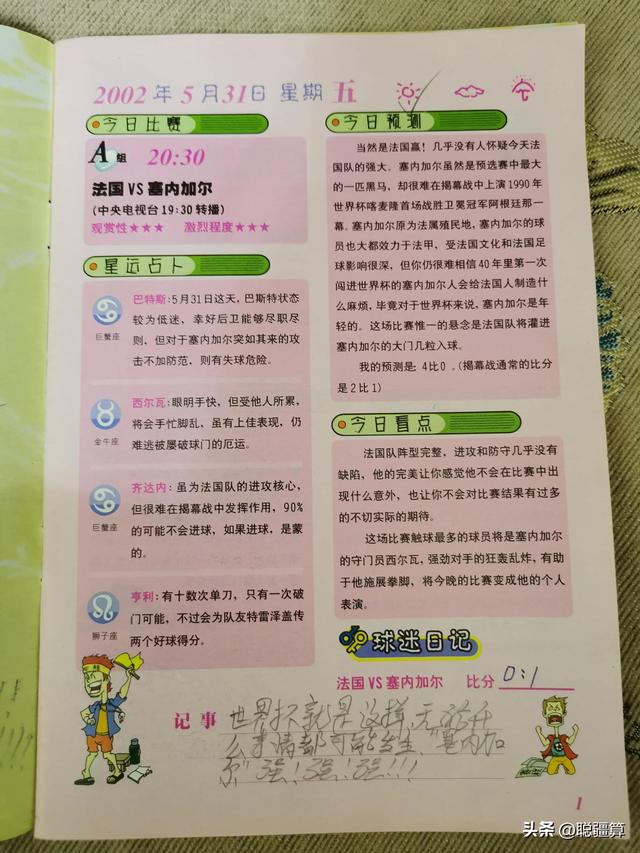 2002年5月31日 星期五
今日比赛
A组 20:30
法国VS塞内加尔
(中央电视台19:30转播)
观赏性★★★ 激烈程度★★★
星运占卜
巨蟹座
巴特斯:5月31日这天,巴斯特状态
较为低迷,幸好后卫能够尽职尽
则,但对于塞内加尔突如其来的攻
击不加防范,则有失球危险。
金牛座
西尔瓦:眼明手快,但受他人所累,
将会手忙脚乱,虽有上佳表现,仍
难逃被屡破球门的厄运。
巨蟹座
齐达内:虽为法国队的进攻核心,
但很难在揭幕战中发挥作用,90%
的可能不会进球,如果进球,是蒙
的。
狮子座
亨利:有十数次单刀,只有一次破
门可能,不过会为队友特雷泽盖传
两个好球得分。
今日预测
当然是法国赢!几乎没有人怀疑今天法
国队的强大。塞内加尔虽然是预选赛中最大
的一匹黑马,却很难在揭幕战中上演1990年
世界杯喀麦隆首场战胜卫冕冠军阿根廷那一
幕。塞内加尔原为法属殖民地,塞内加尔的球
员也大都效力于法甲,受法国文化和法国足
球影响很深,但你仍很难相信40年里第一次
闯进世界杯的塞内加尔人会给法国人制造什
么麻烦,毕竟对于世界杯来说,塞内加尔是年
轻的。这场比赛惟一的悬念是法国队将灌进
塞内加尔的大门几粒入球。
我的预测是:4比0。(揭幕战通常的比分
是2比1)
今日看点
法国队阵型完整,进攻和防守几乎没有
缺陷,他的完美让你感觉他不会在比赛中出
现什么意外,也让你不会对比赛结果有过多
的不切实际的期待。
这场比赛触球最多的球员将是塞内加尔
的守门员西尔瓦,强劲对手的狂轰乱炸,有助
于他施展拳脚,将今晚的比赛变成他的个人
表演。
球迷日记
法国VS塞内加尔 比分 0:1
记事 世界杯就是这样,无论什
么事情都可能发生,"塞内加
尔"强!强!强!!!
1
头条 @聪疆算